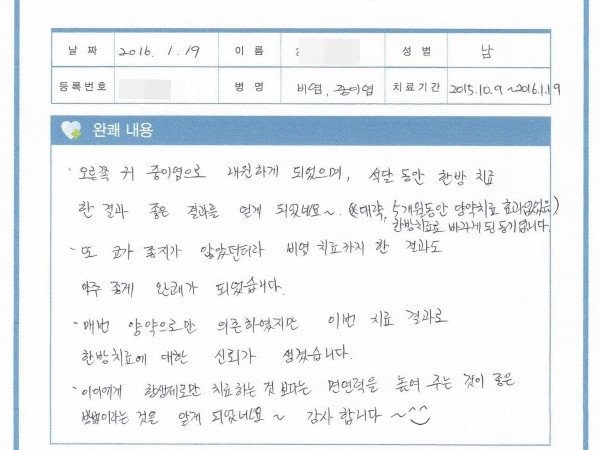 날 짜 2016. 1. 19 이 름 성 별 남
등록번호 병 명 비염, 중이염 치료기간 2015.10.9 ~2016.1.19
완쾌 내용
· 오른쪽 귀 중이염으로 내원하게 되었으며, 석달 동안 한방 치료
한 결과 좋은 결과를 얻게 되었네요~. (※대략, 5개월동안 양약치료 효과없었음)
한방치료로 바꾸게 된 동기입니다.
· 또 코가 좋지가 않았던터라 비염 치료까지 한 결과도
아주 좋게 완쾌가 되었습니다.
· 매번 양약으로만 의존하였지만 이번 치료 결과로
한방치료에 대한 신뢰가 생겼습니다.
· 아이에게 항생제로만 치료하는 것 보다는 면연력을 높여 주는 것이 좋은
방법이라는 것을 알게 되었네요~ 감사 합니다 ~^^